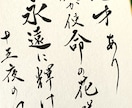 才あり
が使命の花
永遠に輝け
十五夜の